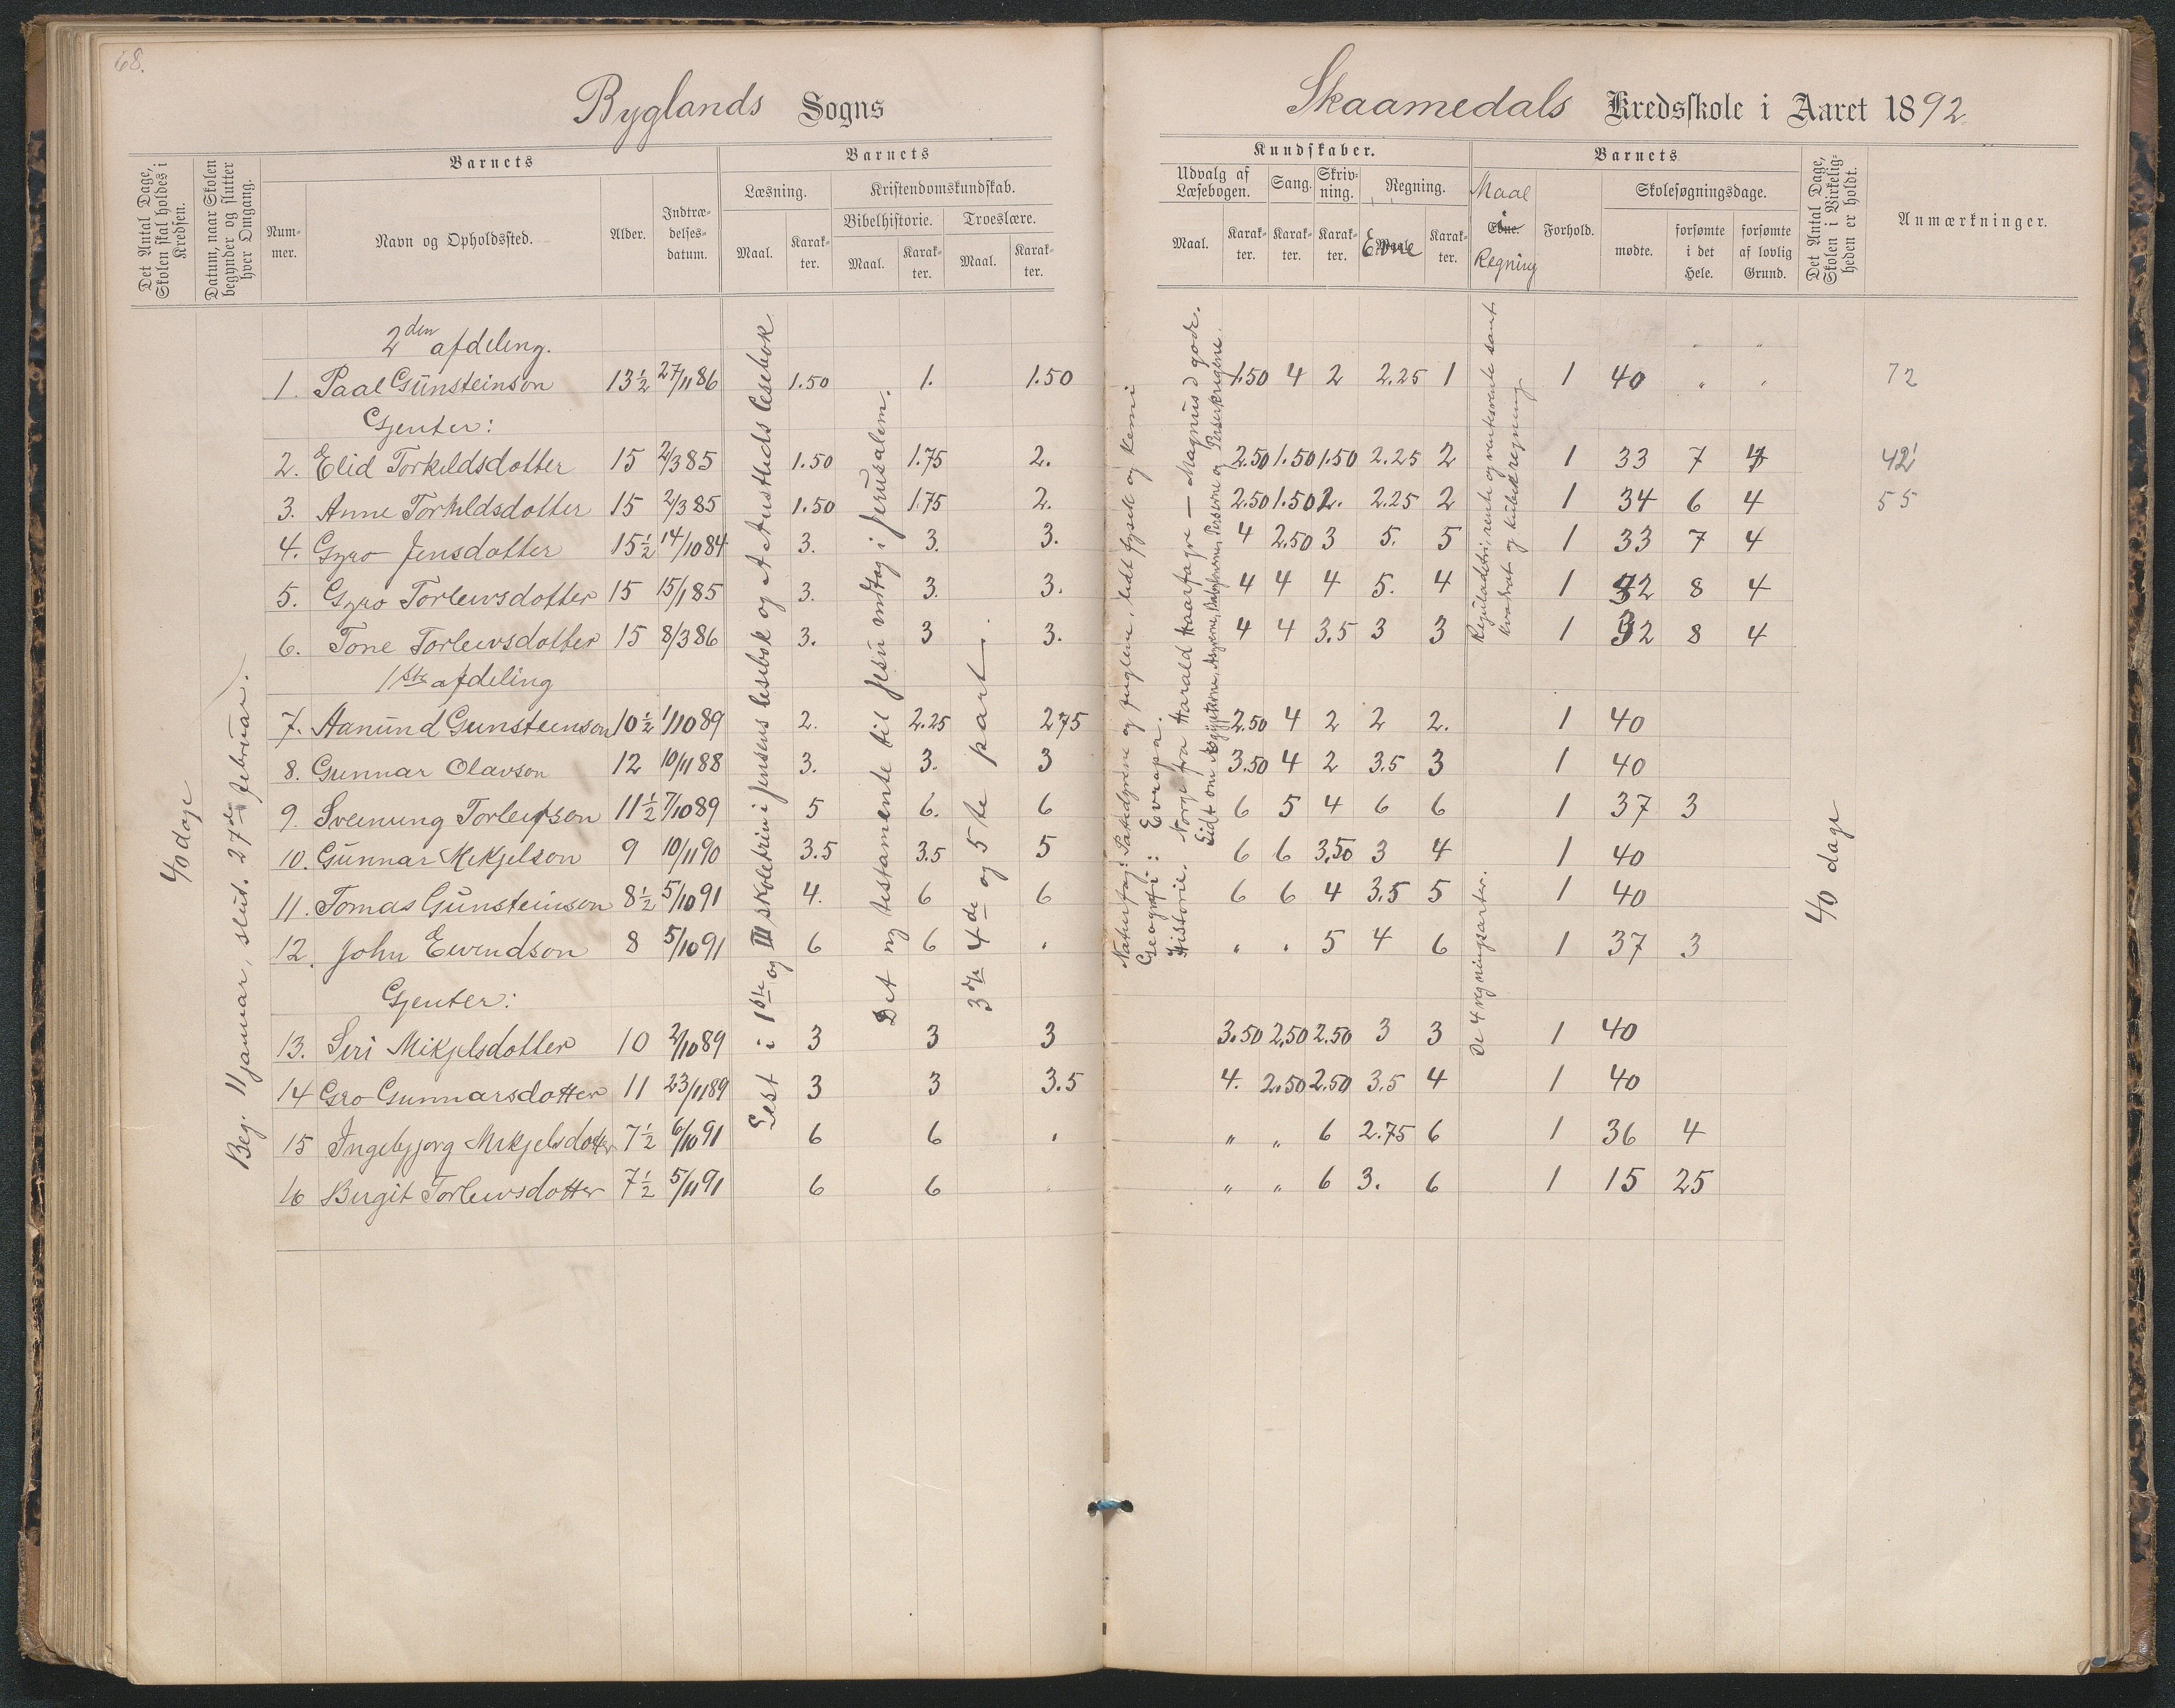 68.
Byglands Sogns
Skaamedals Kredsskole i Aaret 1892.
Det Antal Dage, Skolen skal holdes i Kredsen.
Datum, naar Skolen begynder og slutter hver Omgang.
Barnets
Nummer.
Navn og Opholdssted.
Alder.
Indtrædelsesdatum.
Barnets
Læsning.
Maal.
Karakter.
Kristendomskundskab.
Bibelhistorie.
Maal.
Karakter.
Troeslære.
Maal.
Karakter.
Kundskaber.
Udvalg af Læsebogen.
Maal.
Karakter.
Sang.
Karakter.
Skrivning.
Karakter.
Regning.
Evne
Karakter.
Barnets
Maal i Regning
Evne.
Forhold.
Skolesøgningsdage.
mødte.
forsømte i det Hele.
forsømte af lovlig Grund.
Det Antal Dage, Skolen i Virkeligheden er holdt.
Anmærkninger.
40 dage
Beg. 11 januar, slut. 27de februar.
Lest i 1ste og III skoletrin i Jensens lesebok og A Austlids lesebok
Det ny testamente til Jesu indtog i Jerusalem.
3dje 4de og 5te part.
Naturfag: Patedyrene og fuglene, lidt fysik og kemi
Geografi: Evropa.
Historie. Norge fra Harald Haarfagre — Magnus d gode.
Lidt om Ægypterne, Assyrerne, Perserne og Perserkrigene.
Reguladetri, rente og rentesrente samt kvadrat og kubikregning
De 4 regningsarter.
40 dage
2den afdeling.
1. Paal Gunsteinson 13½ 27/11 86 1.50 1. 1.50 1.50 4 2 2.25 1 1 40 " " 72
Gjenter:
2. Elid Torkildsdotter 15 2/3 85 1.50 1.75 2. 2.50 1.50 1.50 2.25 2 1 33 7 4 42
3. Anne Torkildsdotter 15 2/3 85 1.50 1.75 2. 2.50 1.50 2. 2.25 2 1 34 6 4 55
4. Gyro Jensdotter 15½ 14/10 84 3. 3. 3. 4 2.50 3 5. 5 1 33 7 4
5. Gyro Torleivsdotter 15 15/1 85 3. 3. 3. 4 4 4 5. 4 1 32 8 4
6. Tone Torleivsdotter 15 8/3 86 3. 3 3. 4 4 3.5 3 3 1 32 8 4
1ste afdeling
7. Aanund Gunsteinson 10½ 1/10 89 2. 2.25 2.75 2.50 4 2 2 2. 1 40
8. Gunnar Olavson 12 10/11 88 3. 3. 3 3.50 4 2 3.5 3 1 40
9. Sveinung Torleifson 11½ 7/10 89 5 6. 6 6 5 4 6 6 1 37 3
10. Gunnar Mikjelson 9 10/11 90 3.5 3.5 5 6 6 3.50 3 4 1 40
11. Tomas Gunsteinson 8½ 5/10 91 4. 6 6 6 6 4 3.5 5 1 40
12. John Eivindson 8 5/10 91 6 6 " " " 5 4 6 1 37 3
Gjenter:
13. Siri Mikjelsdotter 10 2/10 89 3 3 3 3.50 2.50 2.50 3 3 1 40
14 Gro Gunnarsdotter 11 23/11 89 3 3 3.5 4. 2.50 2.50 3.5 4 1 40
15 Ingebjørg Mikjelsdotter 7½ 6/10 91 6 6 " " " 6 2.75 6 1 36 4
16 Birgit Torleivsdotter 7½ 5/11 91 6 6 " " 6 3. 6 1 15 25